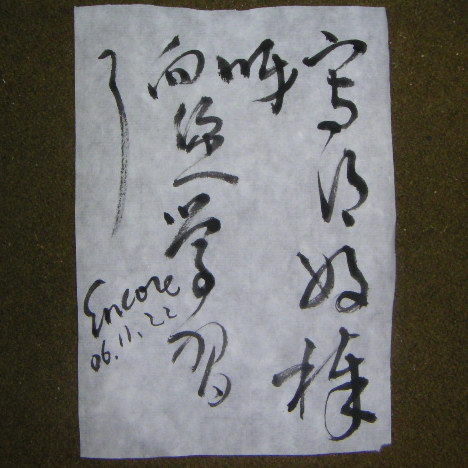 寫得好棒
呀
向您学習
了
Encore
06.11.22